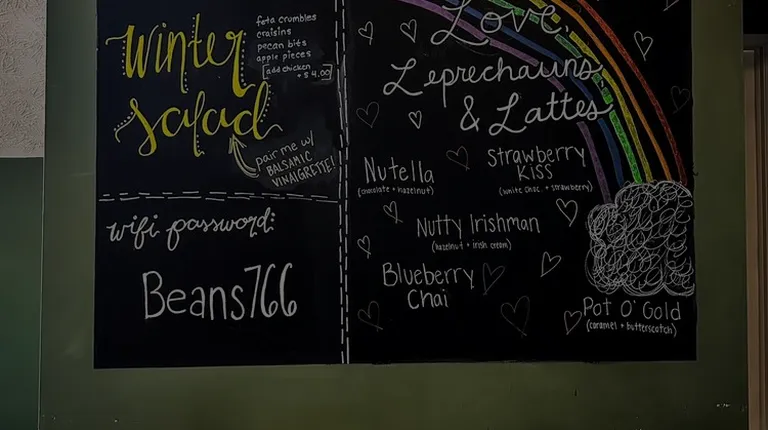 Winter
Salad
feta crumbles
craisins
pecan bits
apple pieces
add chicken
+$4.00
pair me w/
BALSAMIC
VINAIGRETTE!
wifi password:
Beans766
Love,
Leprechauns
& Lattes
Nutella
(chocolate + hazelnut)
Strawberry
Kiss
(white choc. + strawberry)
Nutty Irishman
(hazelnut + irish cream)
Blueberry
Chai
Pot O' Gold
(caramel + butterscotch)